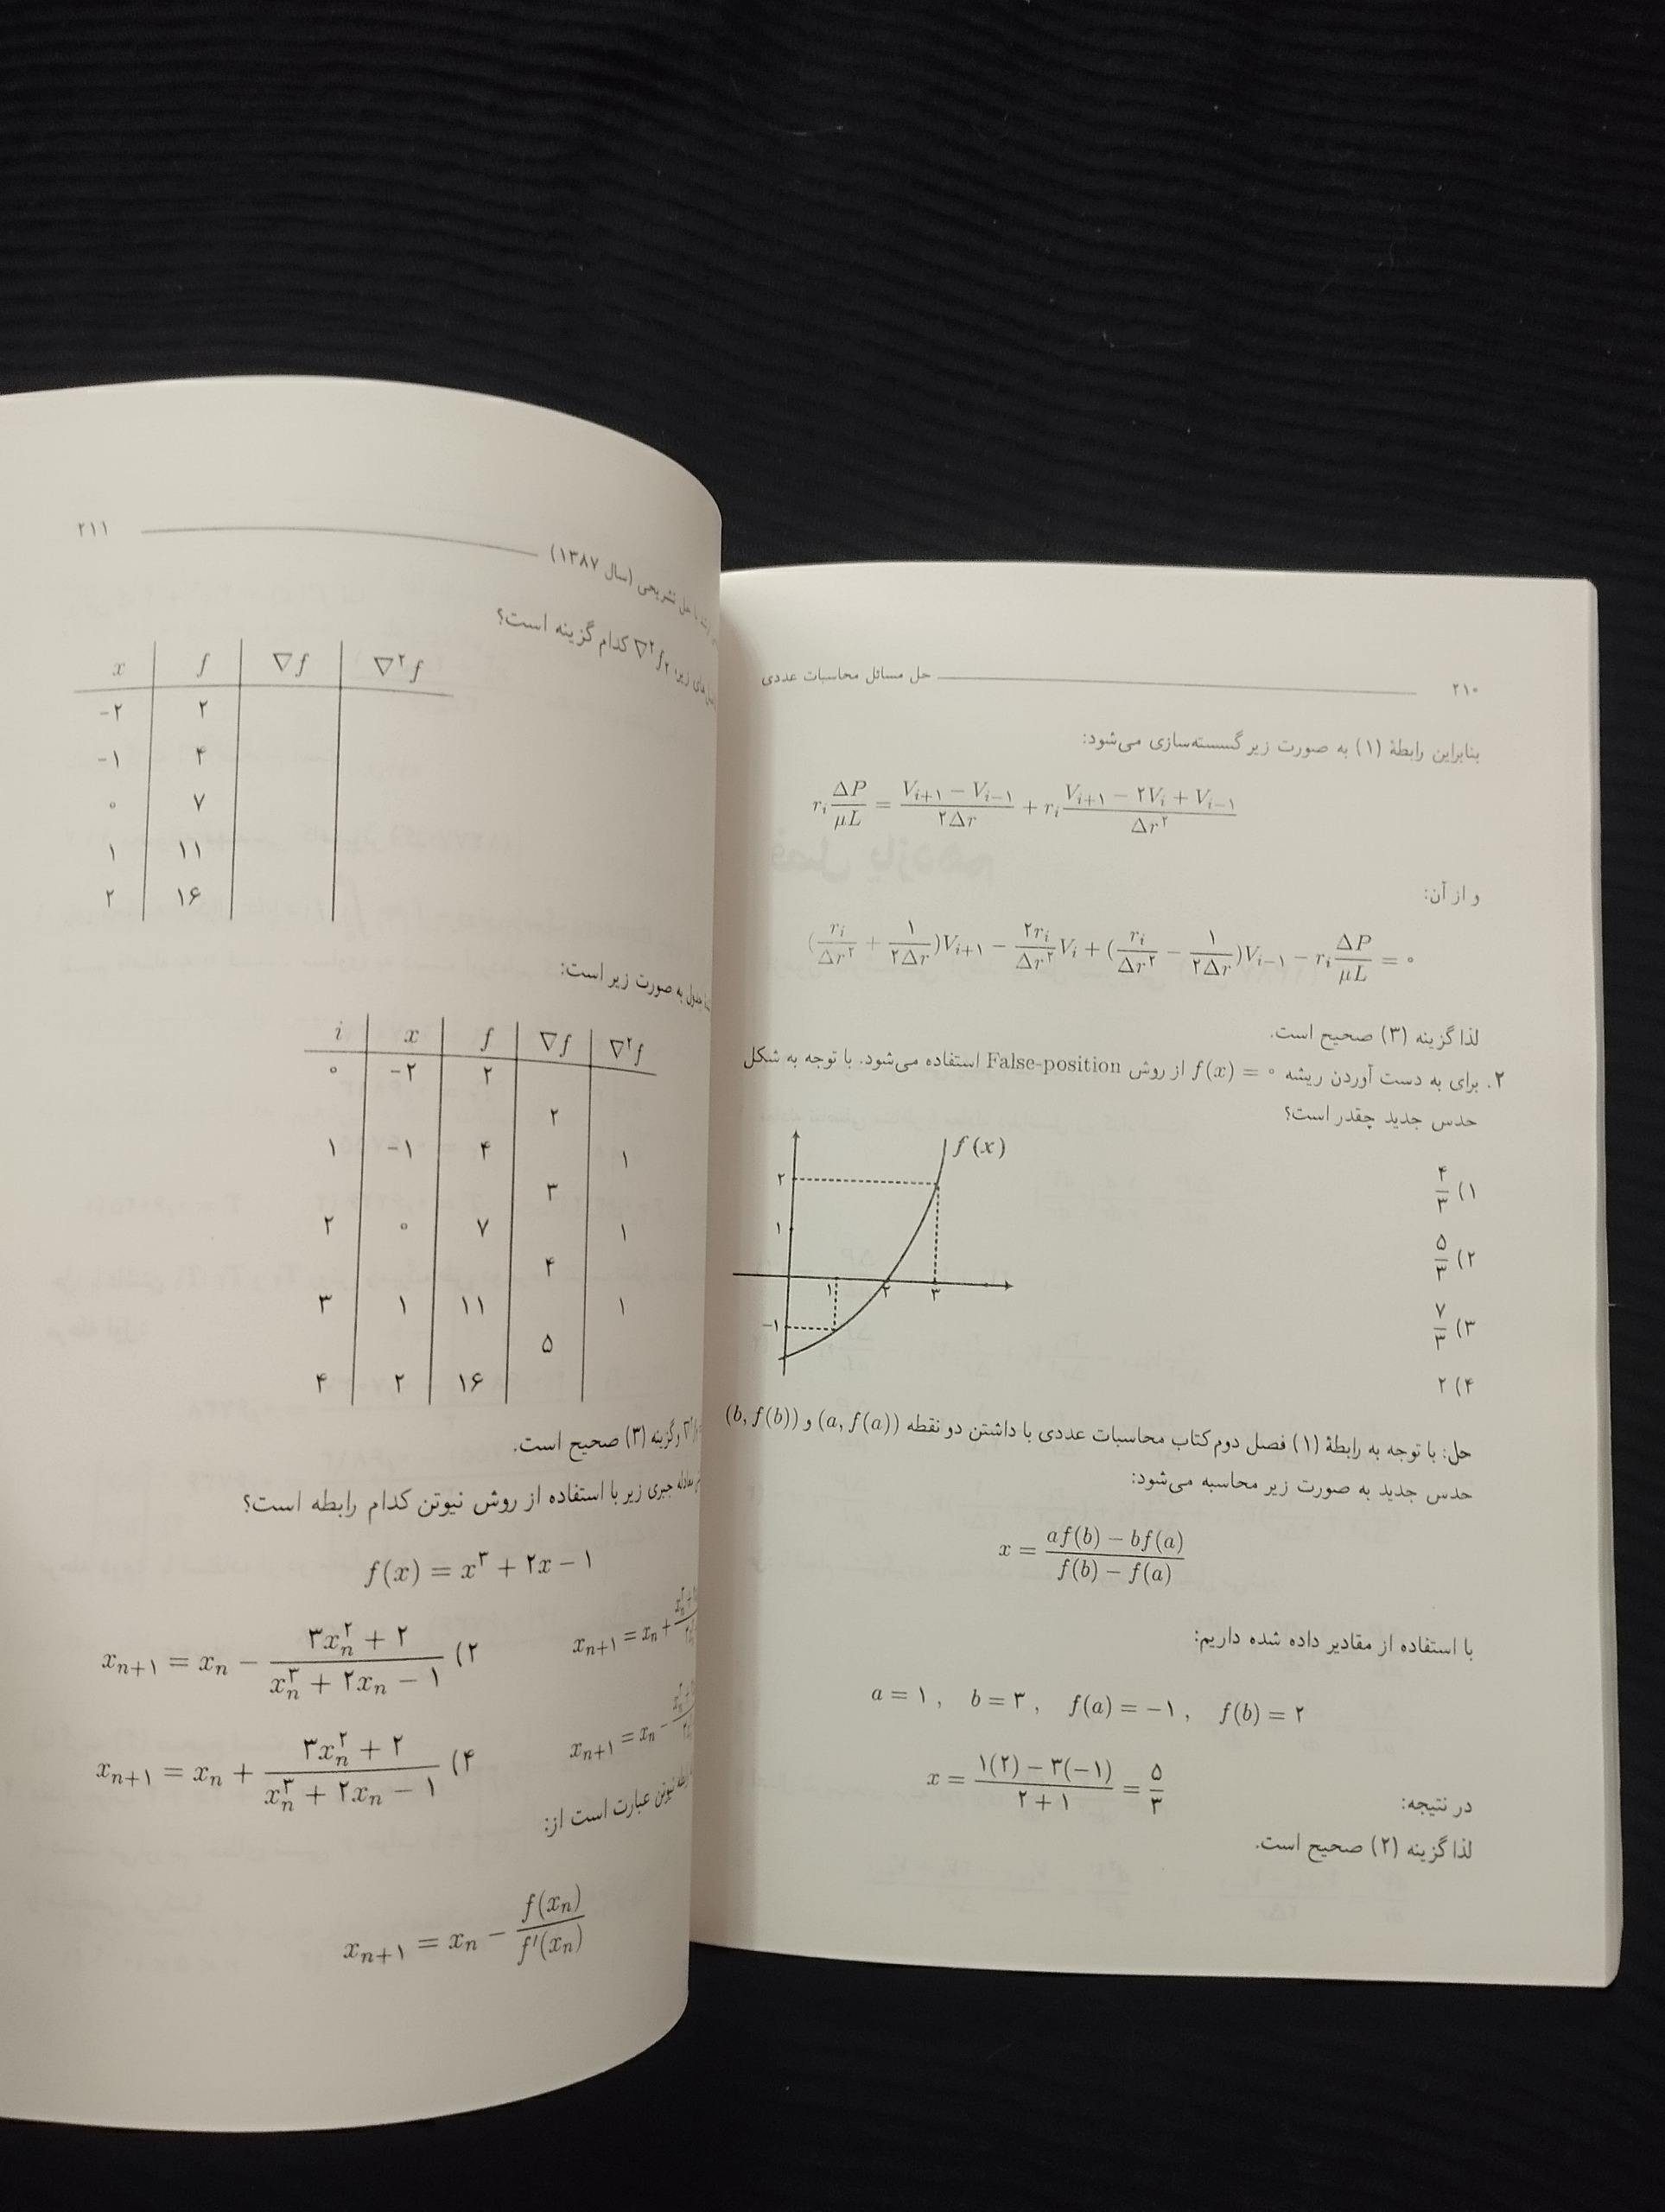 ۲۱۰ حل مسائل محاسبات عددی
بنابراین رابطهٔ (۱) به صورت زیر گسسته‌سازی می‌شود:
r_i ΔP/μL = (V_{i+۱} − V_{i−۱})/(۲Δr) + r_i (V_{i+۱} − ۲V_i + V_{i−۱})/(Δr^۲)
و از آن:
(r_i/Δr^۲ + ۱/(۲Δr))V_{i+۱} − (۲r_i/Δr^۲)V_i + (r_i/Δr^۲ − ۱/(۲Δr))V_{i−۱} − r_i ΔP/μL = ۰
لذا گزینه (۳) صحیح است.
۲. برای به دست آوردن ریشه f(x) = ۰ از روش False-position استفاده می‌شود. با توجه به شکل
حدس جدید چقدر است؟
۱) ۴/۳
۲) ۵/۳
۳) ۷/۳
۴) ۲
f(x)
۲
۱
۱ ۲ ۳
−۱
حل: با توجه به رابطهٔ (۱) فصل دوم کتاب محاسبات عددی با داشتن دو نقطه (a, f(a)) و (b, f(b))
حدس جدید به صورت زیر محاسبه می‌شود:
x = (af(b) − bf(a))/(f(b) − f(a))
با استفاده از مقادیر داده شده داریم:
a = ۱ , b = ۳ , f(a) = −۱ , f(b) = ۲
در نتیجه: x = (۱(۲) − ۳(−۱))/(۲ + ۱) = ۵/۳
لذا گزینه (۲) صحیح است.
حل تشریحی (سال ۱۳۸۷) ۲۱۱
های زیر، ∇^۲f_۲ کدام گزینه است؟
x f ∇f ∇^۲f
−۲ ۲
−۱ ۴
۰ ۷
۱ ۱۱
۲ ۱۶
جدول به صورت زیر است:
i x f ∇f ∇^۲f
۰ −۲ ۲
۲
۱ −۱ ۴ ۱
۳
۲ ۰ ۷ ۱
۴
۳ ۱ ۱۱ ۱
۵
۴ ۲ ۱۶
گزینه (۳) صحیح است.
معادله جبری زیر با استفاده از روش نیوتن کدام رابطه است؟
f(x) = x^۳ + ۲x − ۱
x_{n+۱} = x_n +
۲) x_{n+۱} = x_n − (۳x_n^۲ + ۲)/(x_n^۳ + ۲x_n − ۱)
x_{n+۱} = x_n −
۴) x_{n+۱} = x_n + (۳x_n^۲ + ۲)/(x_n^۳ + ۲x_n − ۱)
نیوتن عبارت است از:
x_{n+۱} = x_n − f(x_n)/f′(x_n)